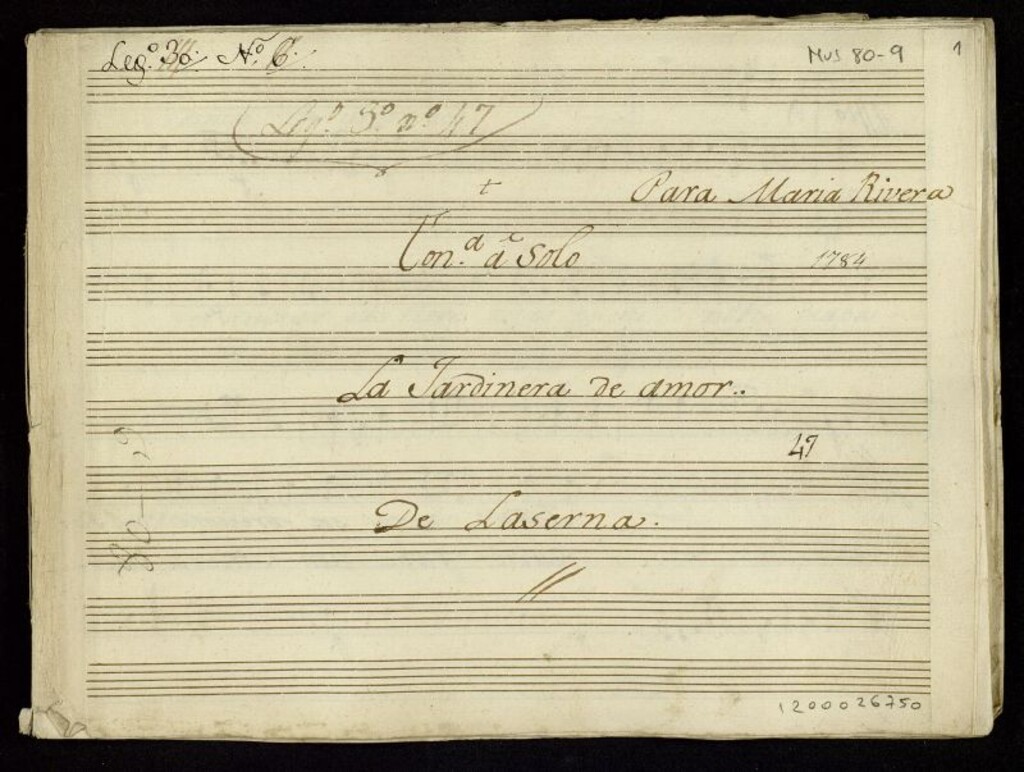 Leg.º 36. N.º 6.
Mus 80-9
1
Leg.º 3.º n.º 47
+
Para Maria Rivera
Ton.ª â Solo
1784
La Jardinera de amor..
47
De Laserna.
1200026750